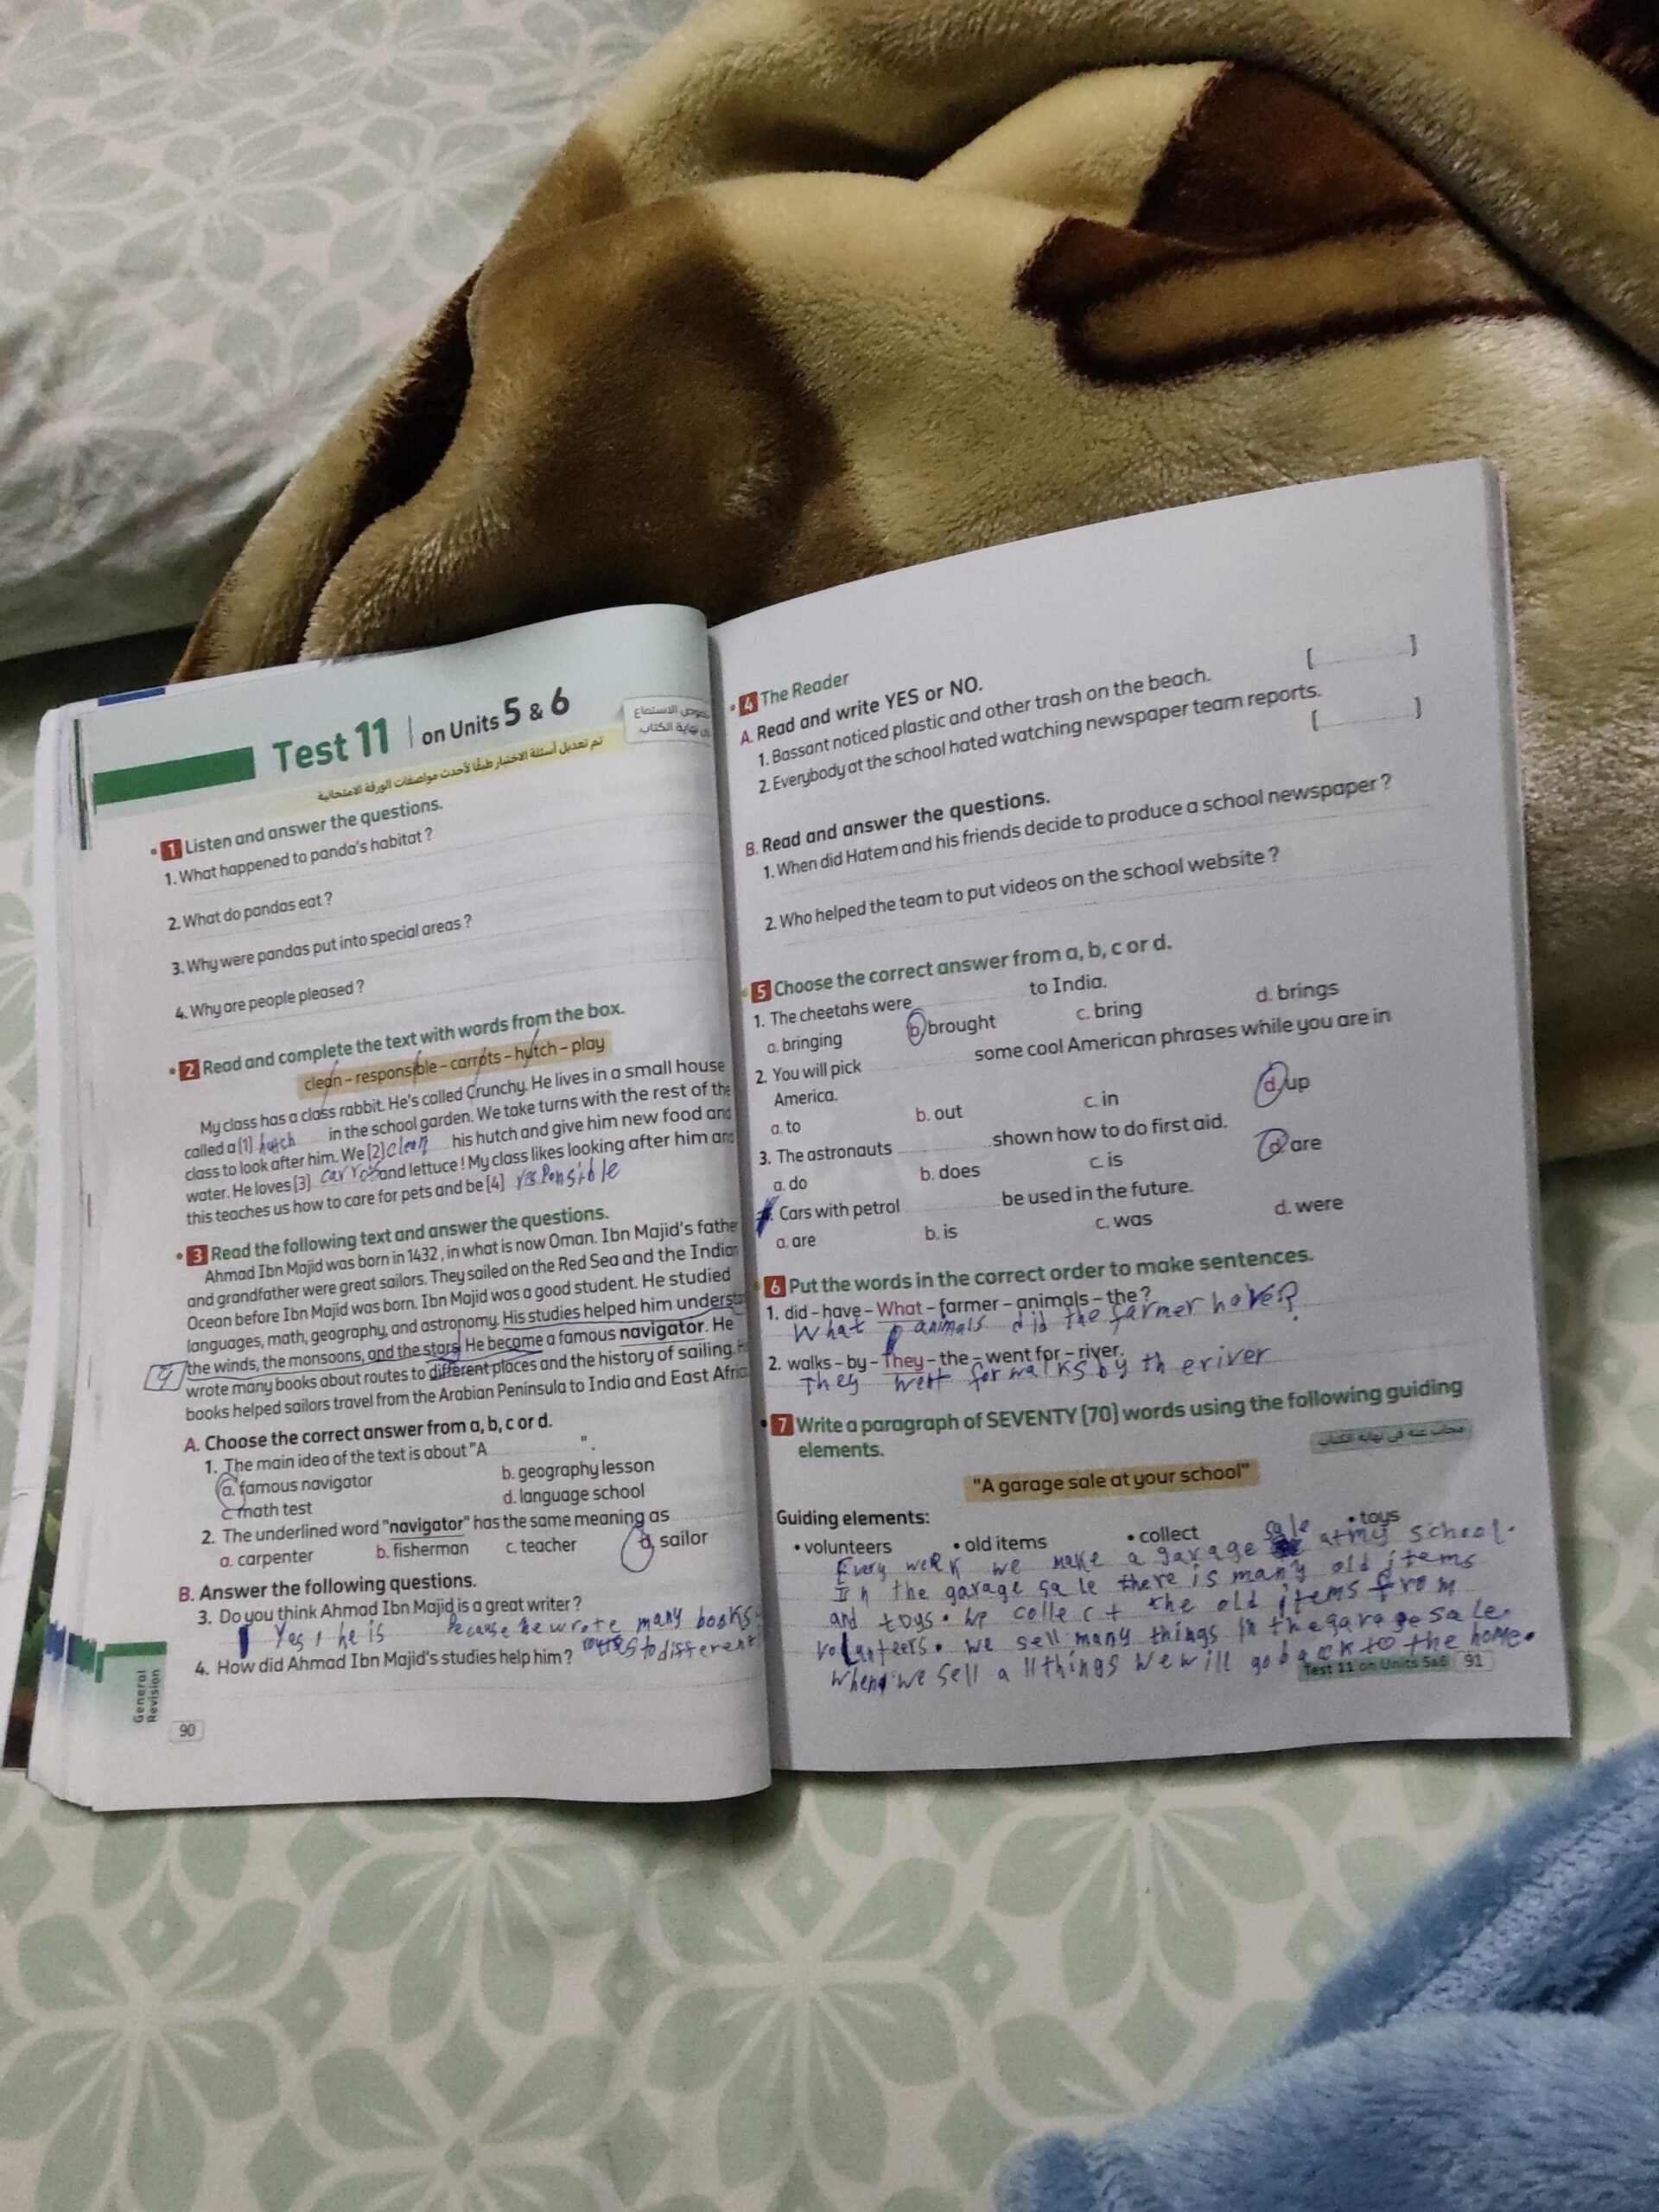 Test 11 on Units 5 & 6
تم تعديل أسئلة الاختبار طبقًا لأحدث مواصفات الورقة الامتحانية
الاستماع
نهاية الكتاب
1 Listen and answer the questions.
1. What happened to panda's habitat ?
2. What do pandas eat ?
3. Why were pandas put into special areas ?
4. Why are people pleased ?
2 Read and complete the text with words from the box.
clean – responsible – carrots – hutch – play
My class has a class rabbit. He's called Crunchy. He lives in a small house
called a [1] hutch in the school garden. We take turns with the rest of the
class to look after him. We [2] clean his hutch and give him new food and
water. He loves [3] carrots and lettuce ! My class likes looking after him and
this teaches us how to care for pets and be [4] responsible
3 Read the following text and answer the questions.
Ahmad Ibn Majid was born in 1432 , in what is now Oman. Ibn Majid's fathe
and grandfather were great sailors. They sailed on the Red Sea and the Indian
Ocean before Ibn Majid was born. Ibn Majid was a good student. He studied
languages, math, geography, and astronomy. His studies helped him understa
4 the winds, the monsoons, and the stars. He became a famous navigator. He
wrote many books about routes to different places and the history of sailing. H
books helped sailors travel from the Arabian Peninsula to India and East Afric
A. Choose the correct answer from a, b, c or d.
1. The main idea of the text is about "A ".
a. famous navigator b. geography lesson
c. math test d. language school
2. The underlined word "navigator" has the same meaning as
a. carpenter b. fisherman c. teacher d. sailor
B. Answer the following questions.
3. Do you think Ahmad Ibn Majid is a great writer ?
Yes , he is Because he wrote many books
4. How did Ahmad Ibn Majid's studies help him ? routes to different
General
Revision
90
4 The Reader
A. Read and write YES or NO.
1. Bassant noticed plastic and other trash on the beach. [ ]
2. Everybody at the school hated watching newspaper team reports. [ ]
B. Read and answer the questions.
1. When did Hatem and his friends decide to produce a school newspaper ?
2. Who helped the team to put videos on the school website ?
5 Choose the correct answer from a, b, c or d.
1. The cheetahs were to India.
a. bringing b. brought c. bring d. brings
2. You will pick some cool American phrases while you are in
America.
a. to b. out c. in d. up
3. The astronauts shown how to do first aid.
a. do b. does c. is d. are
. Cars with petrol be used in the future.
a. are b. is c. was d. were
6 Put the words in the correct order to make sentences.
1. did – have – What – farmer – animals – the ?
What animals did the farmer have?
2. walks – by – They – the – went for – river.
They went for walks by the river
7 Write a paragraph of SEVENTY [70] words using the following guiding
elements.
مجاب عنه في نهاية الكتاب
"A garage sale at your school"
Guiding elements:
• volunteers • old items • collect • toys
Every week we make a garage sale at my school.
In the garage sale there is many old items
and toys. we collect the old items from
volunteers. we sell many things in the garage sale.
When we sell all things we will go back to the home.
Test 11 on Units 5&6 91